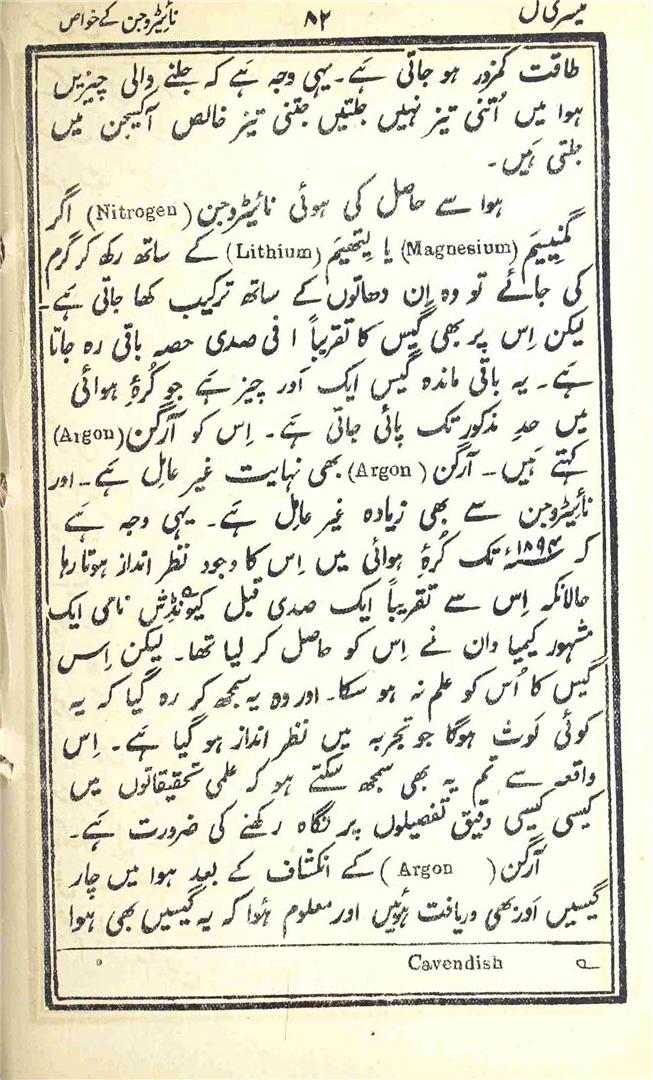 تیسری فصل ۸۲ نائیٹروجن کے خواص
طاقت کمزور ہو جاتی ہے۔ یہی وجہ ہے کہ جلنے والی چیزیں
ہوا میں اُتنی تیز نہیں جلتیں جتنی تیز خالص آکسیجن میں
جلتی ہیں۔
ہوا سے حاصل کی ہوئی نائیٹروجن (Nitrogen) اگر
مگنیسیَم (Magnesium) یا لیتھیَم (Lithium) کے ساتھ رکھ کر گرم
کی جائے تو وہ اِن دھاتوں کے ساتھ ترکیب کھا جاتی ہے۔
لیکن اِس پر بھی گیس کا تقریباً ۱ فی صدی حصہ باقی رہ جاتا
ہے۔ یہ باقی ماندہ گیس ایک اَور چیز ہے جو کُرۂ ہوائی
میں حدِ مذکور تک پائی جاتی ہے۔ اِس کو آرگن (Argon)
کہتے ہیں۔ آرگن (Argon) بھی نہایت غیر عامِل ہے۔ اور
نائیٹروجن سے بھی زیادہ غیر عامِل ہے۔ یہی وجہ ہے
کہ ۱۸۹۴ء تک کُرۂ ہوائی میں اِس کا وجود نظر انداز ہوتا رہا
حالانکہ اِس سے تقریباً ایک صدی قبل کیونڈِش نامی ایک
مشہور کیمیا دان نے اِس کو حاصل کر لیا تھا۔ لیکن اِس
گیس کا اُس کو علم نہ ہو سکا۔ اور وہ یہ سمجھ کر رہ گیا کہ یہ
کوئی لَوث ہوگا جو تجربہ میں نظر انداز ہو گیا ہے۔ اِس
واقعہ سے تم یہ بھی سمجھ سکتے ہو کہ علمی تحقیقاتوں میں
کیسی کیسی دقیق تفصیلوں پر نگاہ رکھنے کی ضرورت ہے۔
آرگن (Argon) کے انکشاف کے بعد ہوا میں چار
گیسیں اَور بھی دریافت ہُوئیں اور معلوم ہُوا کہ یہ گیسیں بھی ہوا
Cavendish